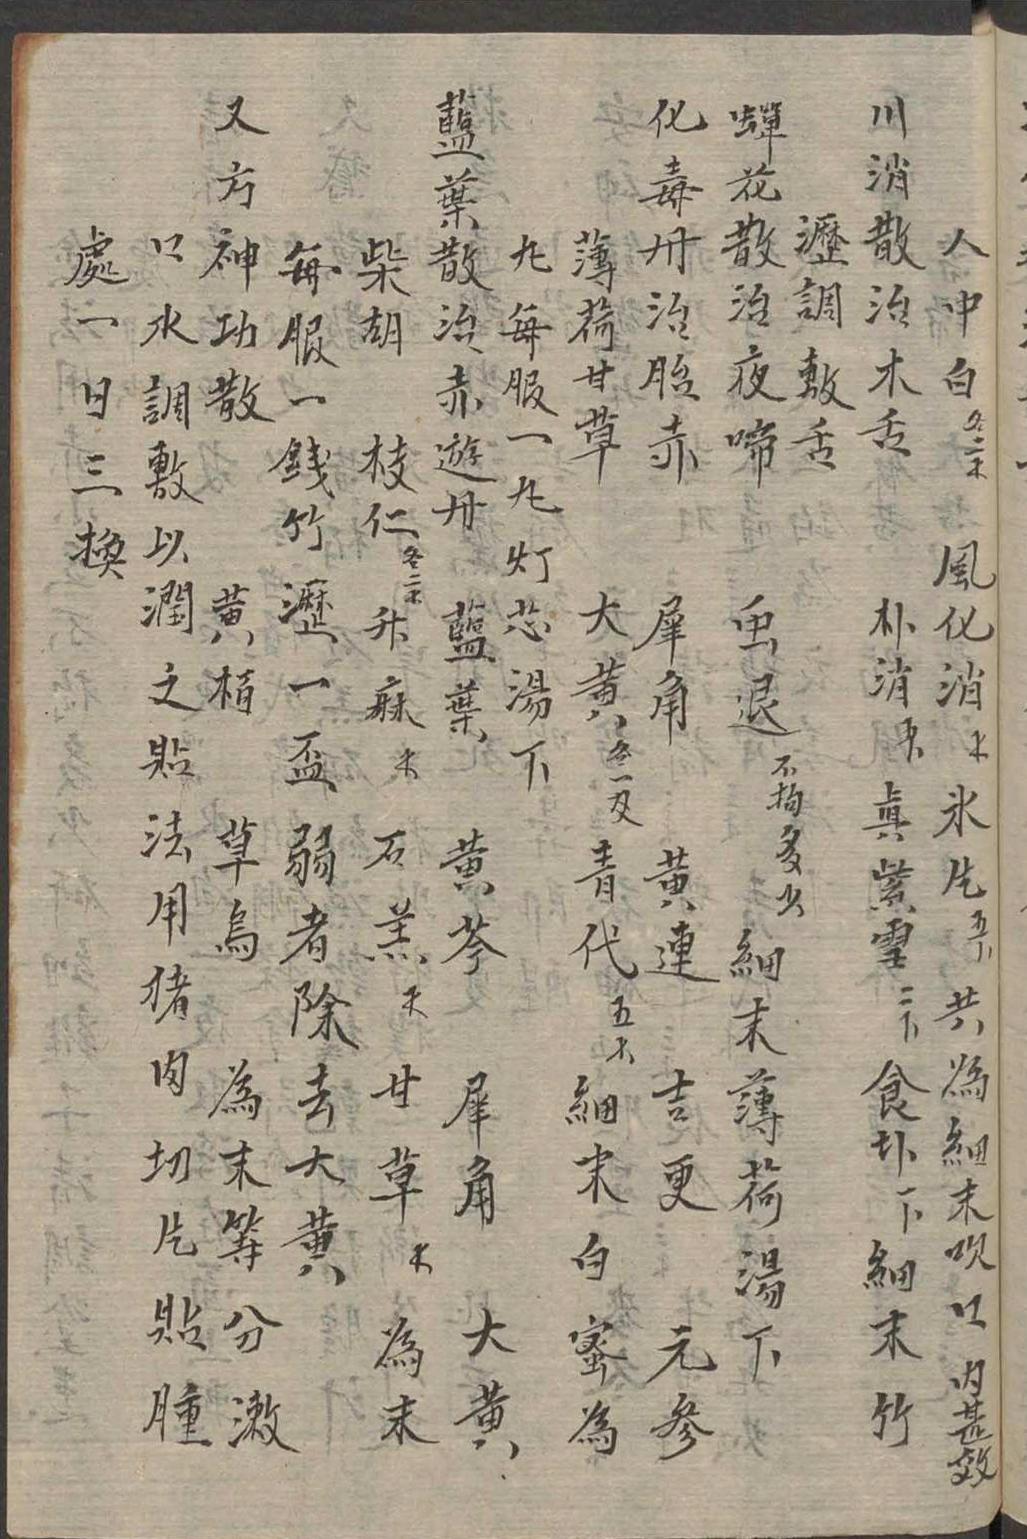 人中白各二木 風化消木 氷片五卜 共為細末吹口内甚效
川消散治木舌 朴消 真紫雪二卜 食圤下細末竹
瀝調敷舌
蟬花散治夜啼 虫退不拘多少 細末薄荷湯下
化毒丹治胎赤 犀角 黄連 吉更 元參
薄荷甘草 大黄各一又 青代五木 細末白蜜為
丸每服一丸灯芯湯下
藍葉散治赤遊丹 藍葉 黄芩 犀角 大黄
柴胡 枝仁各二木 升麻木 石羔木 甘草木 為末
每服一錢竹瀝一盃弱者除去大黄
又方神功散 黄栢 草烏 為末等分漱
口水調敷以潤之貼法用猪肉切片貼腫
處一日三換